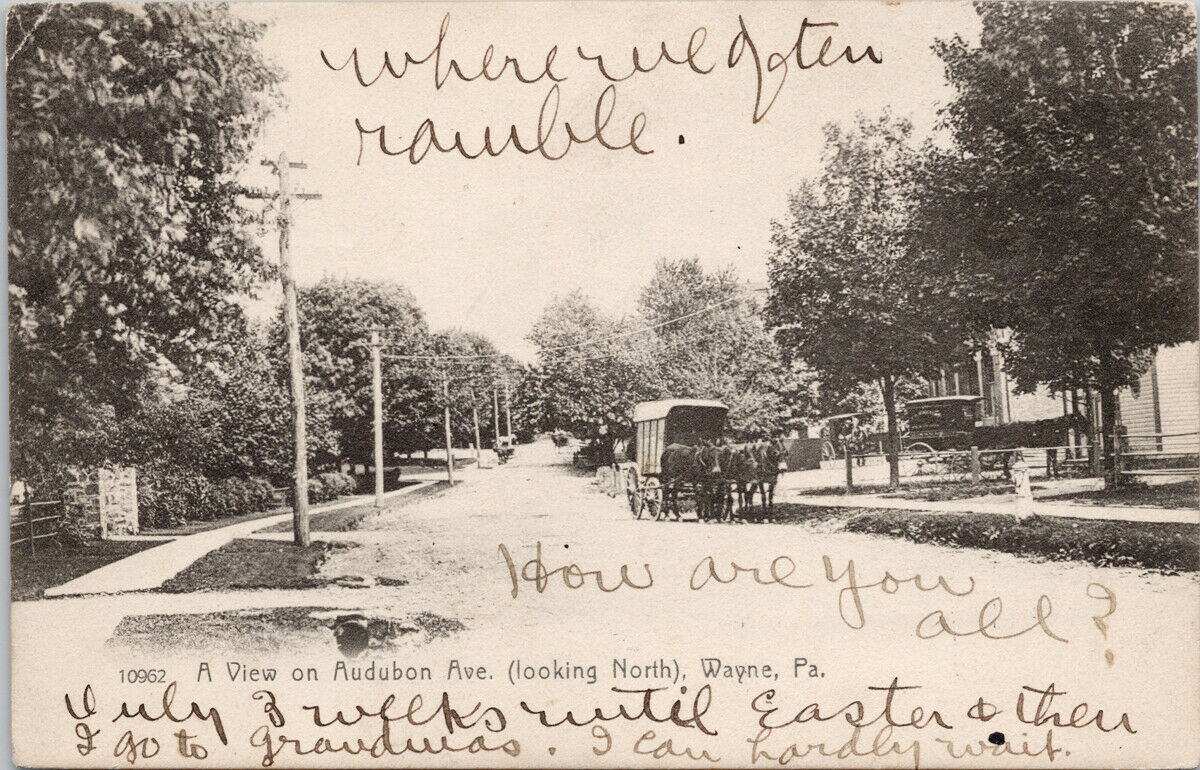 where we often
ramble.
How are you
all?
10962 A View on Audubon Ave. (looking North), Wayne, Pa.
Only 3 weeks until Easter & then
I go to grandmas. I can hardly wait.